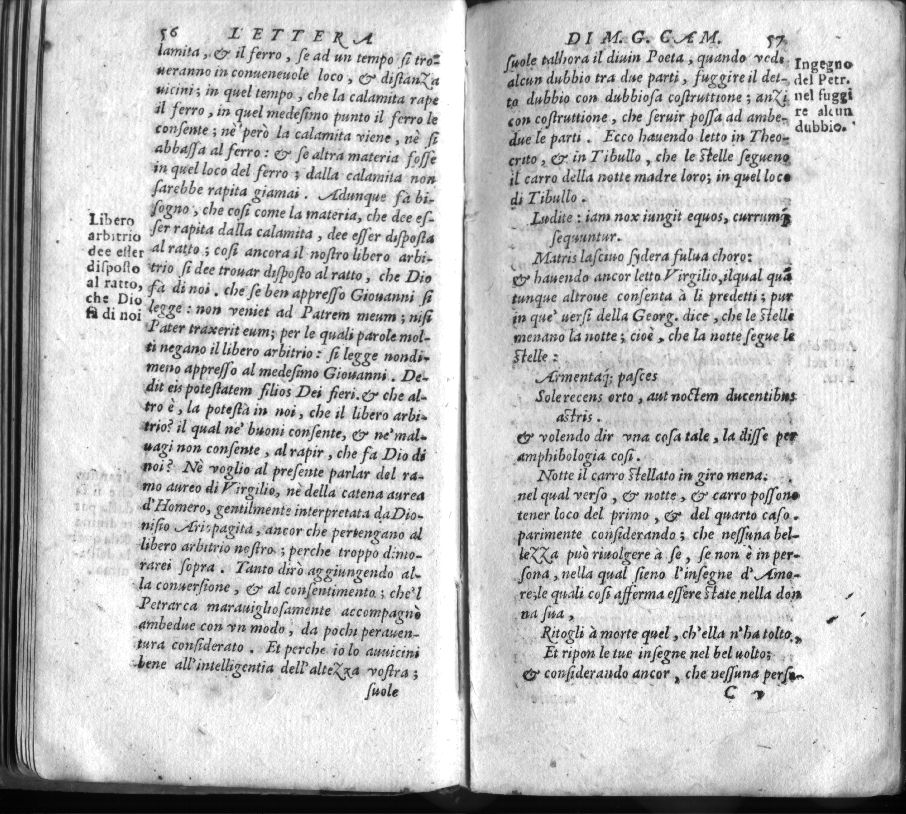 56 LETTERA
lamita, & il ferro, se ad un tempo si tro-
ueranno in conueneuole loco, & distanza
uicini; in quel tempo, che la calamita rape
il ferro, in quel medesimo punto il ferro le
consente; nè però la calamita viene, nè si
abbassa al ferro: & se altra materia fosse
in quel loco del ferro; dalla calamita non
sarebbe rapita giamai. Adunque fa bi-
sogno, che così come la materia, che dee es-
ser rapita dalla calamita, dee esser disposta
al ratto; così ancora il nostro libero arbi-
trio si dee trouar disposto al ratto, che Dio
fa di noi. che se ben appresso Giouanni si
legge: non veniet ad Patrem meum; nisi
Pater traxerit eum; per le quali parole mol-
ti negano il libero arbitrio: si legge nondi-
meno appresso al medesimo Giouanni. De-
dit eis potestatem filios Dei fieri. & che al-
tro è, la potestà in noi, che il libero arbi-
trio? il qual ne' buoni consente, & ne' mal-
uagi non consente, al rapir, che fa Dio di
noi? Nè voglio al presente parlar del ra-
mo aureo di Virgilio, nè della catena aurea
d'Homero, gentilmente interpretata da Dio-
nisio Ariopagita, ancor che pertengano al
libero arbitrio nostro; perche troppo dimo-
rarei sopra. Tanto dirò aggiungendo al-
la conuersione, & al consentimento; che'l
Petrarca marauigliosamente accompagnò
ambedue con vn modo, da pochi perauen-
tura considerato. Et perche io lo auuicini
bene all'intelligentia dell'altezza vostra;
suole
Libero
arbitrio
dee esser
disposto
al ratto,
che Dio
fà di noi
DI M. G. CAM. 57
suole talhora il diuin Poeta, quando vede
alcun dubbio tra due parti, fuggire il det-
to dubbio con dubbiosa costruttione; anzi
con costruttione, che seruir possa ad ambe-
due le parti. Ecco hauendo letto in Theo-
crito, & in Tibullo, che le stelle segueno
il carro della notte madre loro; in quel loco
di Tibullo.
Ludite: iam nox iungit equos, currumq;
sequuntur.
Matris lasciuo sydera fulua choro:
& hauendo ancor letto Virgilio, ilqual quā
tunque altroue consenta à li predetti; pur
in que' uersi della Georg. dice, che le stelle
menano la notte; cioè, che la notte segue le
stelle:
Armentaq; pasces
Sole recens orto, aut noctem ducentibus
astris.
& volendo dir vna cosa tale, la disse per
amphibologia così.
Notte il carro stellato in giro mena:
nel qual verso, & notte, & carro possono
tener loco del primo, & del quarto caso.
parimente considerando; che nessuna bel-
lezza può riuolgere à se, se non è in per-
sona, nella qual sieno l'insegne d'Amo-
re; le quali così afferma essere state nella don
na sua,
Ritogli à morte quel, ch'ella n'ha tolto,
Et ripon le tue insegne nel bel uolto;
& considerando ancor, che nessuna perso-
C
Ingegno
del Petr.
nel fuggi
re alcun
dubbio.